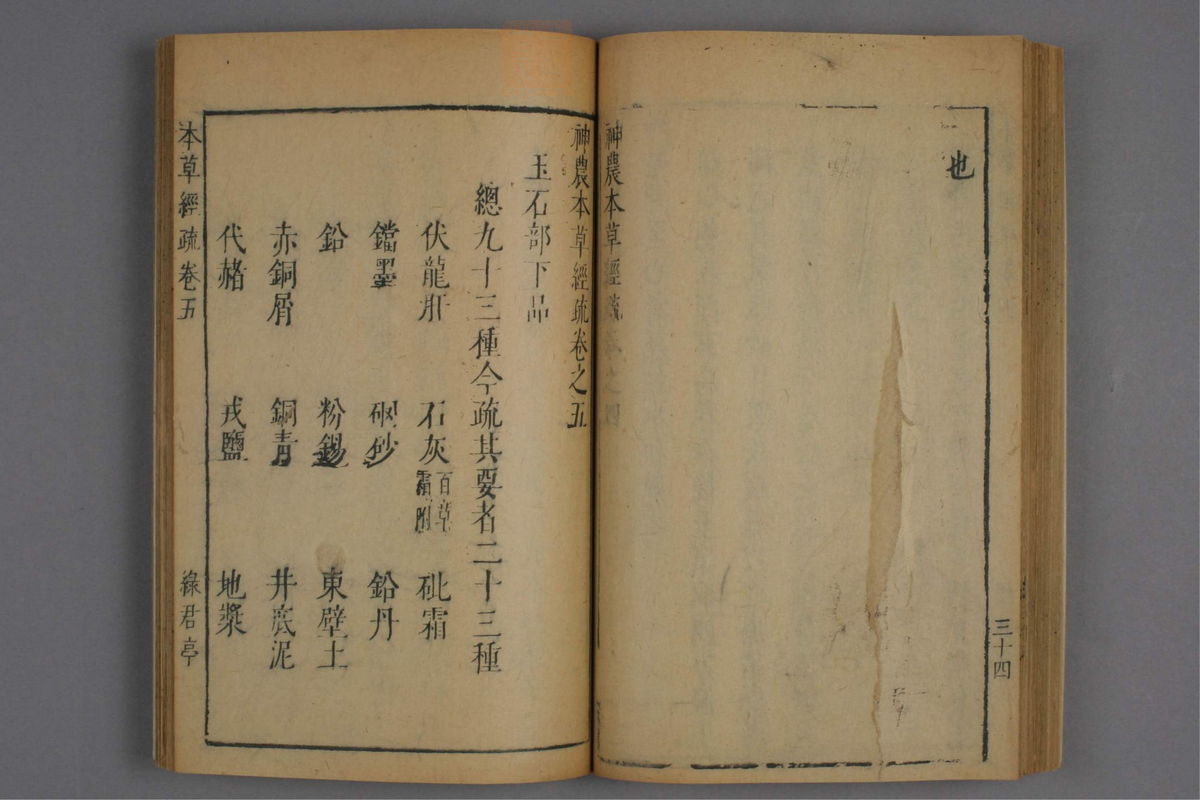 也
三十四
神農本草經疏卷之四
神農本草經疏卷之五
玉石部下品
總九十三種今疏其要者二十三種
伏龍肝 石灰百草霜附 砒霜
鐺墨 硇砂 鉛丹
鉛 粉錫 東壁土
赤銅屑 銅青 井底泥
代赭 戎鹽 地漿
本草經疏卷五 綠君亭